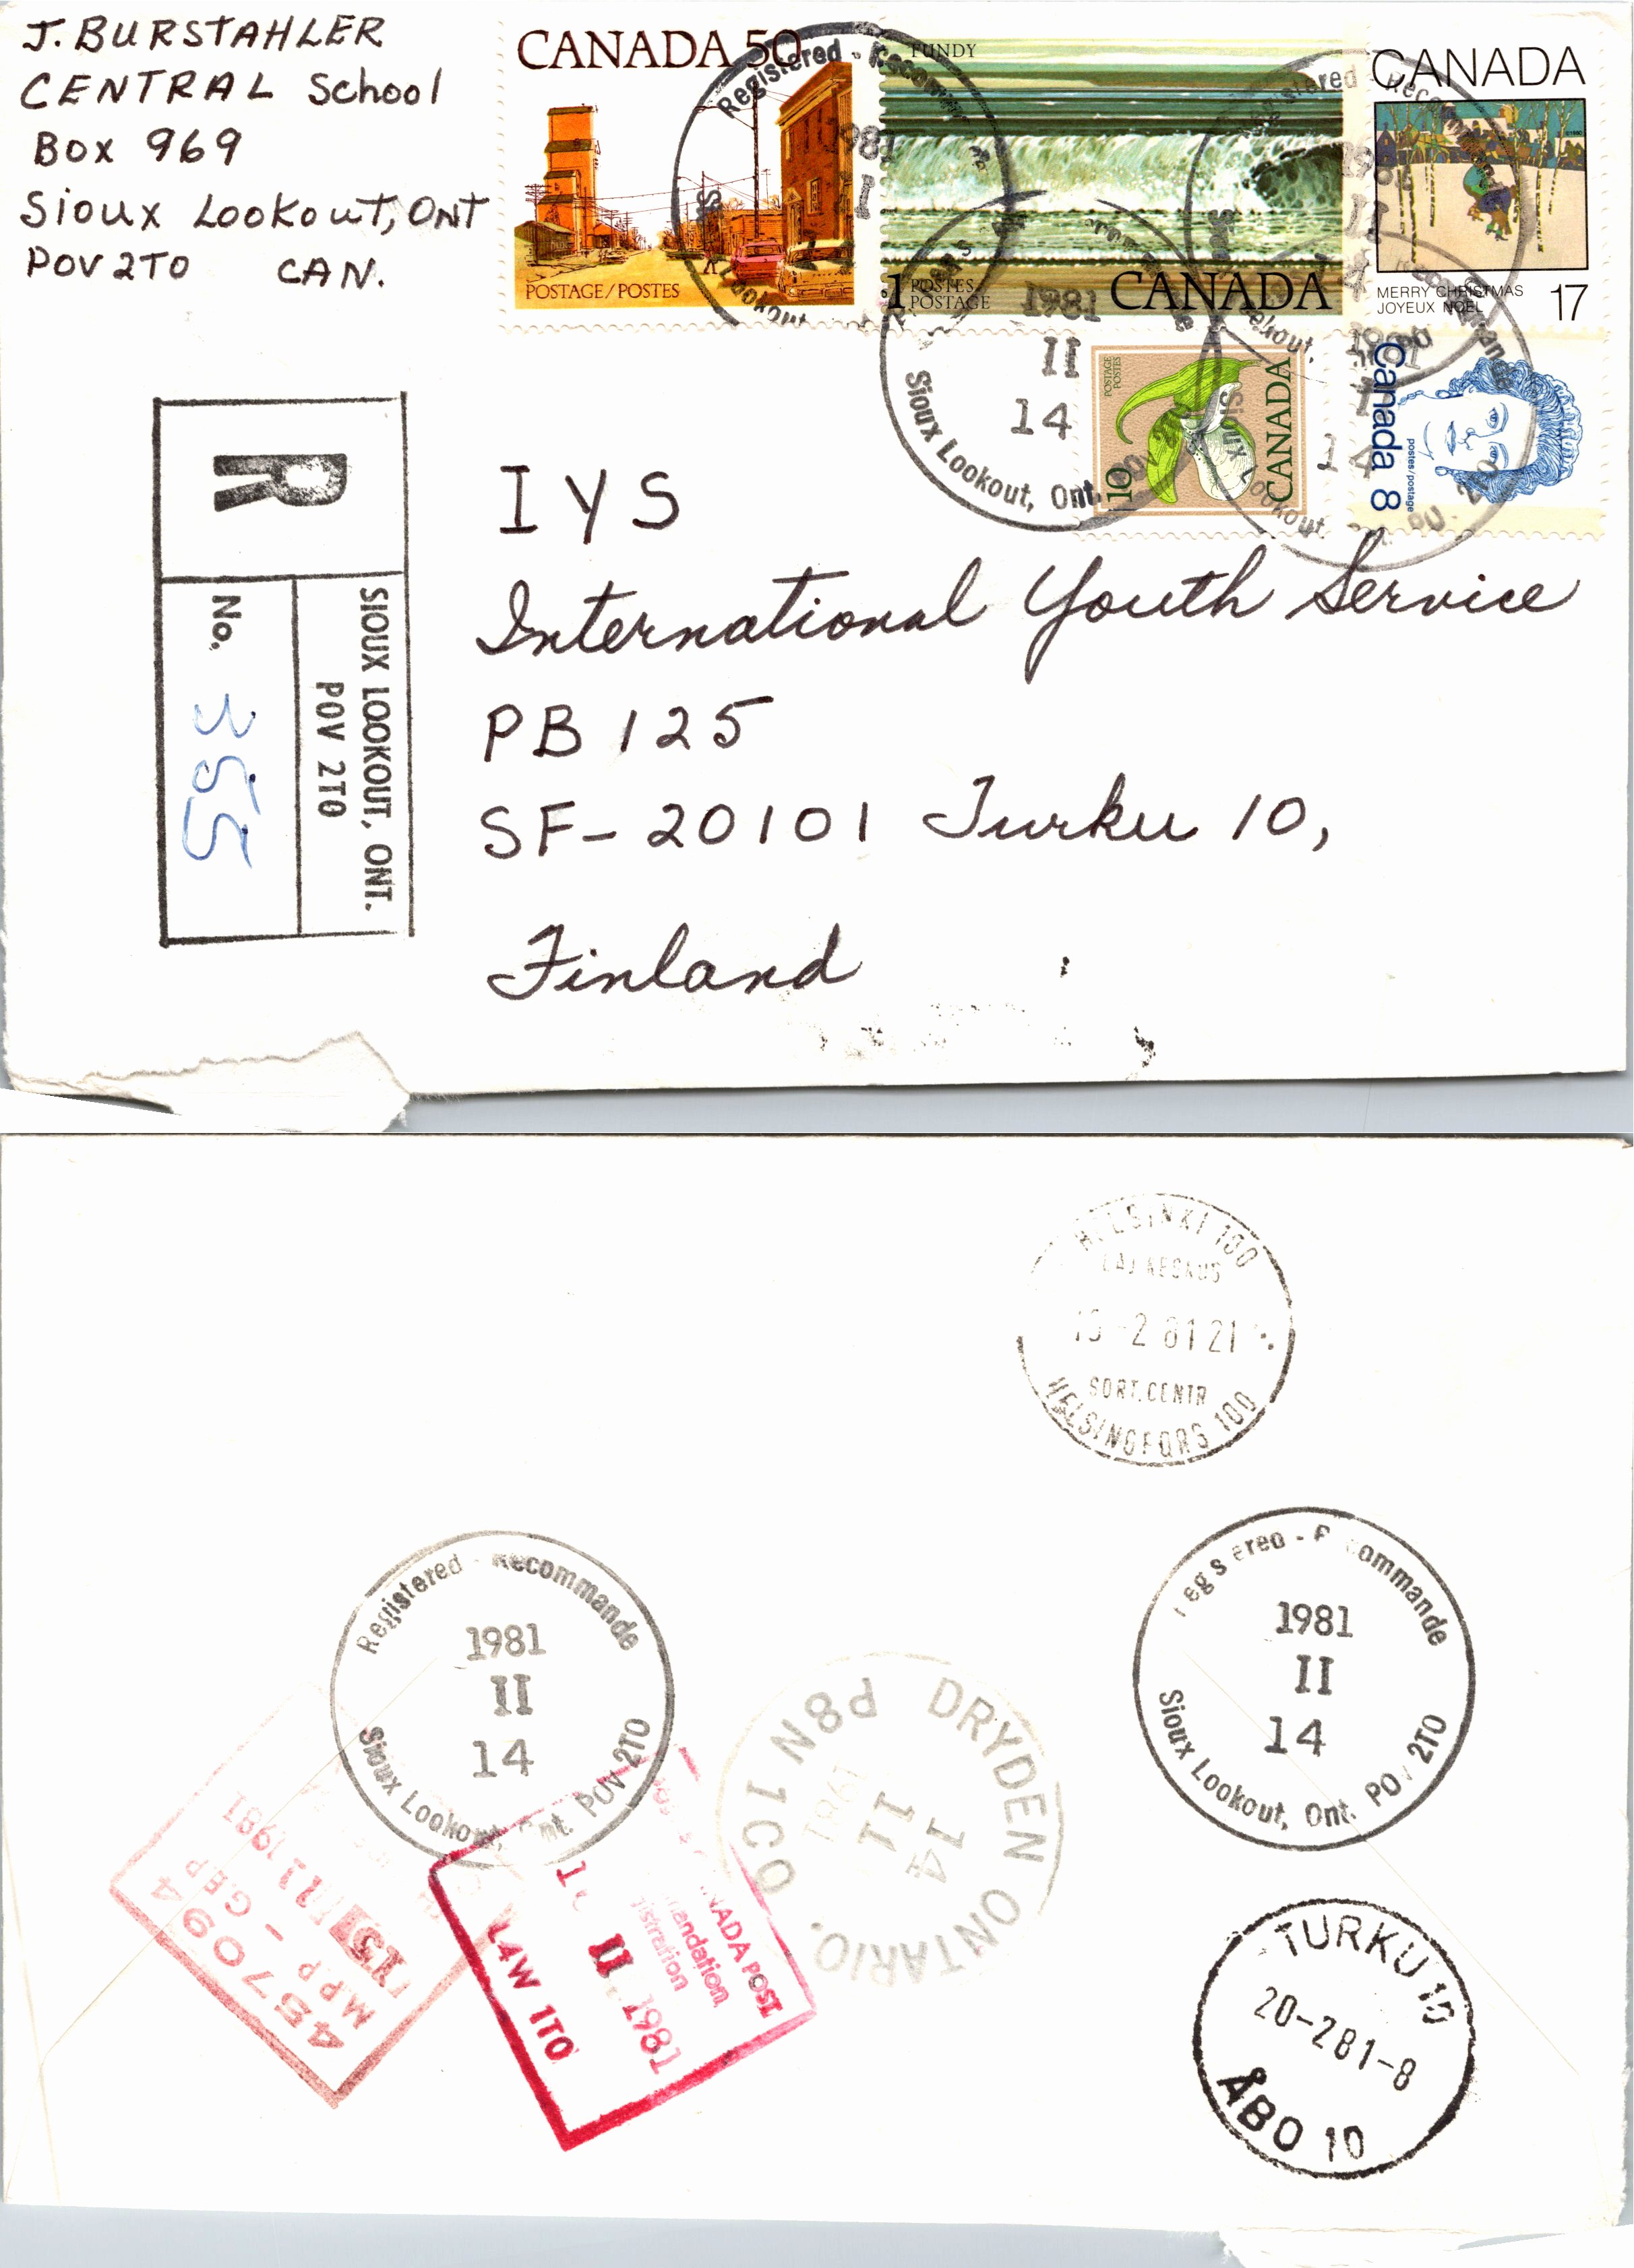 J. BURSTAHLER
CENTRAL School
Box 969
Sioux Lookout, ONT
POV 2T0 CAN.
CANADA 50
POSTAGE/POSTES
FUNDY
1 POSTES
POSTAGE
CANADA
CANADA
©1980
MERRY CHRISTMAS
JOYEUX NOËL
17
POSTAGE
POSTES
10
CANADA
Canada 8
postes/postage
Registered -
1981
Sioux Lookout, Ont.
1981
II
14
R
No. 355
SIOUX LOOKOUT, ONT.
POV 2T0
IYS
International Youth Service
PB 125
SF-20101 Turku 10,
Finland
HELSINKI 100
-2 81 21
SORT.CENTR
HELSINGFORS 100
Registered - Recommande
1981
II
14
Sioux Lookout, Ont. POV 2T0
1981
II
14
Sioux Lookout, Ont. 2T0
DRYDEN ONTARIO.
P8N 1C0
14
11
1981
457094
MPP - GEP
1981
CANADA POST
II 1981
L4W 1T0
TURKU 10
20-281-8
ÅBO 10